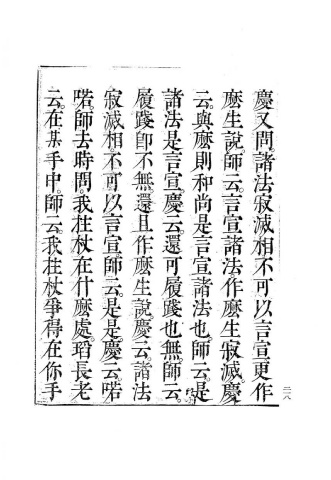 慶又問。諸法寂滅相不可以言宣更作
麽生說。師云。言宣諸法。作麽生寂滅。慶
云。與麽則和尚是言宣諸法也。師云。是
諸法是言宣。慶云。還可履踐也無。師云。
履踐卽不無。還且作麽生說。慶云。諸法
寂滅相。不可以言宣。師云。是是。慶云。喏
喏。師去時問。我拄杖在什麽處。瑫長老
云。在某手中。師云。我拄杖爭得在你手
二一八